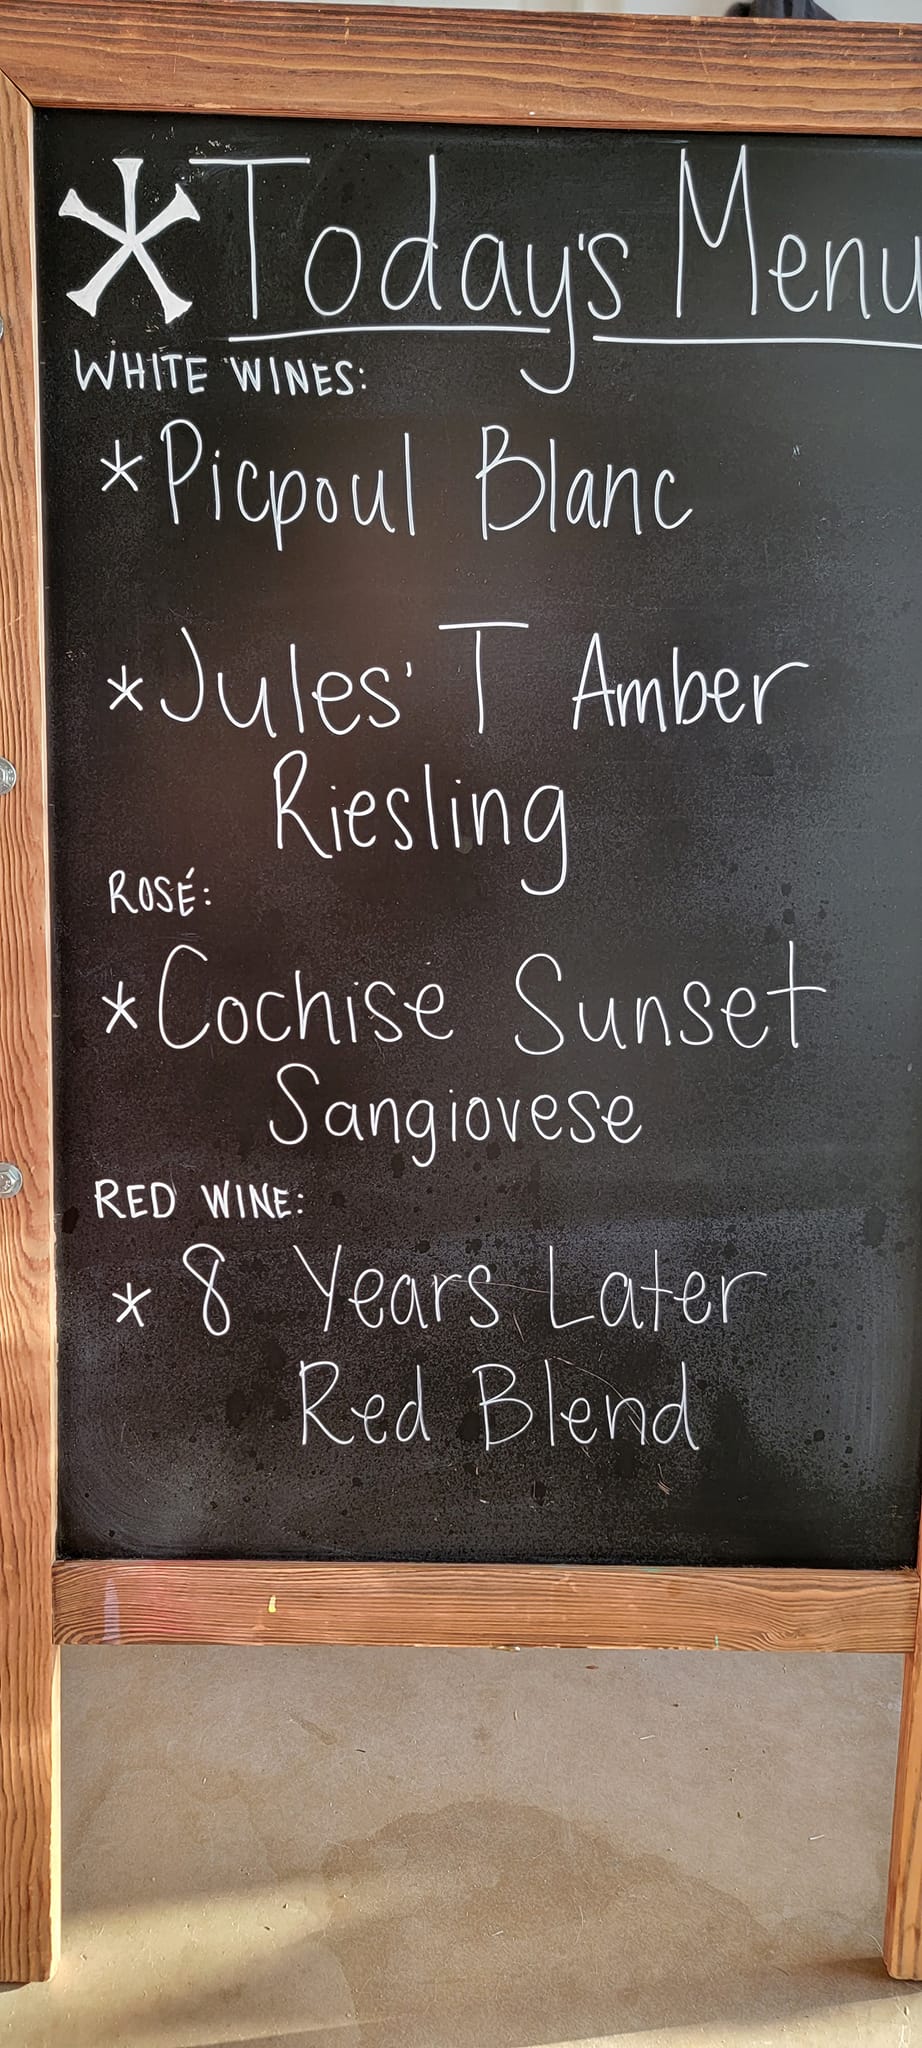 *Today's Menu
WHITE WINES:
*Picpoul Blanc
*Jules' T Amber
Riesling
ROSÉ:
*Cochise Sunset
Sangiovese
RED WINE:
* 8 Years Later
Red Blend